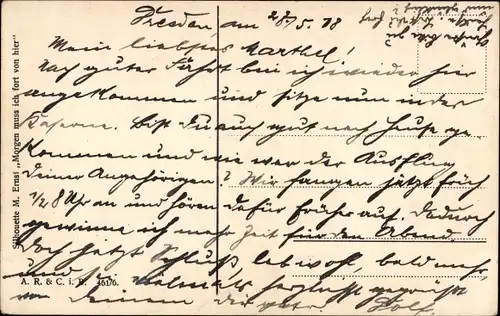 Dresden, am 28/5. 18
Mein liebstes Marthel!
Nach guter Fahrt bin ich wieder hier
angekommen und sitze nun in der
Kaserne. Bist du auch gut nach Hause ge-
kommen und wie war der Ausflug
deiner Angehörigen? Wir fangen jetzt früh
1/2 8 Uhr an und hören dafür früher auf. Dadurch
gewinne ich mehr Zeit für den Abend.
Doch jetzt Schluß, leb wohl, bald mehr,
und sei vielmals herzlichst gegrüßt
von Deinem Dir
Silhouette M. Ernst „Morgen muss ich fort von hier"
A. R. & C. i. B. 461/6.